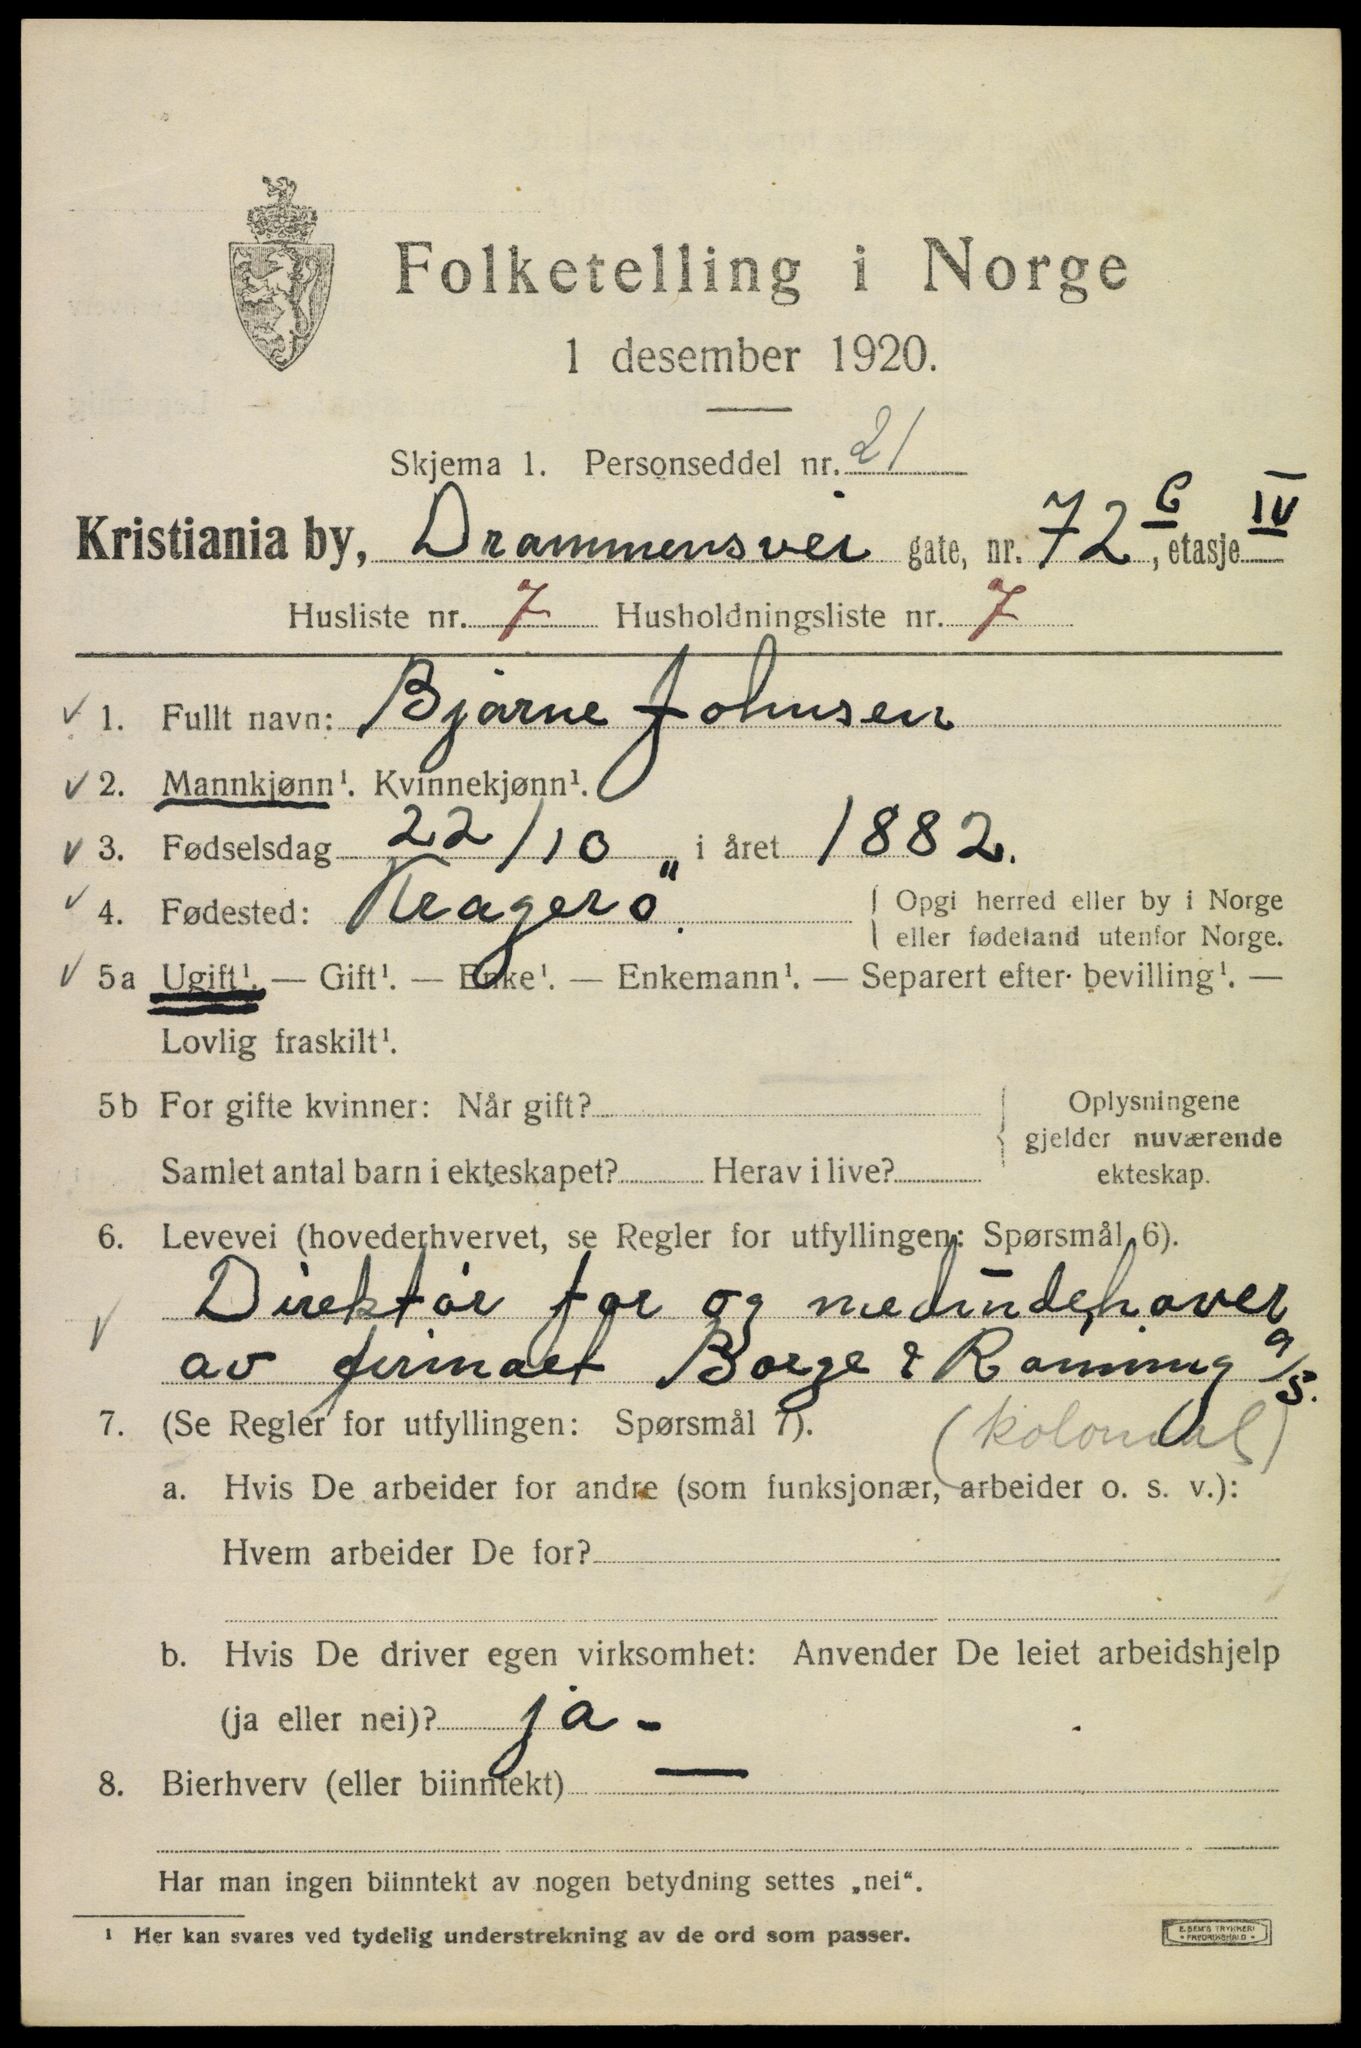 Folketelling i Norge
1 desember 1920.
Skjema 1. Personseddel nr. 21
Kristiania by, Drammensvei gate, nr. 72 C, etasje IV
Husliste nr. 7 Husholdningsliste nr. 7
1. Fullt navn: Bjarne Johnsen
2. Mannkjønn¹. Kvinnekjønn¹.
3. Fødselsdag 22/10 i året 1882.
4. Fødested: Kragerö. Opgi herred eller by i Norge
eller fødeland utenfor Norge.
5a Ugift¹. — Gift¹. — Enke¹. — Enkemann¹. — Separert efter bevilling¹. —
Lovlig fraskilt¹.
5b For gifte kvinner: Når gift? Oplysningene
gjelder nuværende
Samlet antal barn i ekteskapet? Herav i live? ekteskap.
6. Levevei (hovederhvervet, se Regler for utfyllingen: Spørsmål 6).
Direktør for og medindehaver
av firmaet Borge & Ramming a/s.
7. (Se Regler for utfyllingen: Spørsmål 7). (kolonial)
a. Hvis De arbeider for andre (som funksjonær, arbeider o. s. v.):
Hvem arbeider De for?
b. Hvis De driver egen virksomhet: Anvender De leiet arbeidshjelp
(ja eller nei)? ja -
8. Bierhverv (eller biinntekt) —
Har man ingen biinntekt av nogen betydning settes „nei“.
¹ Her kan svares ved tydelig understrekning av de ord som passer.
E. SEM'S TRYKKERI
• FREDRIKSHALD •